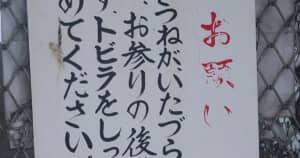 お願い
つねがいたづら
、お参りの後
す、トビラをしっ
めてください